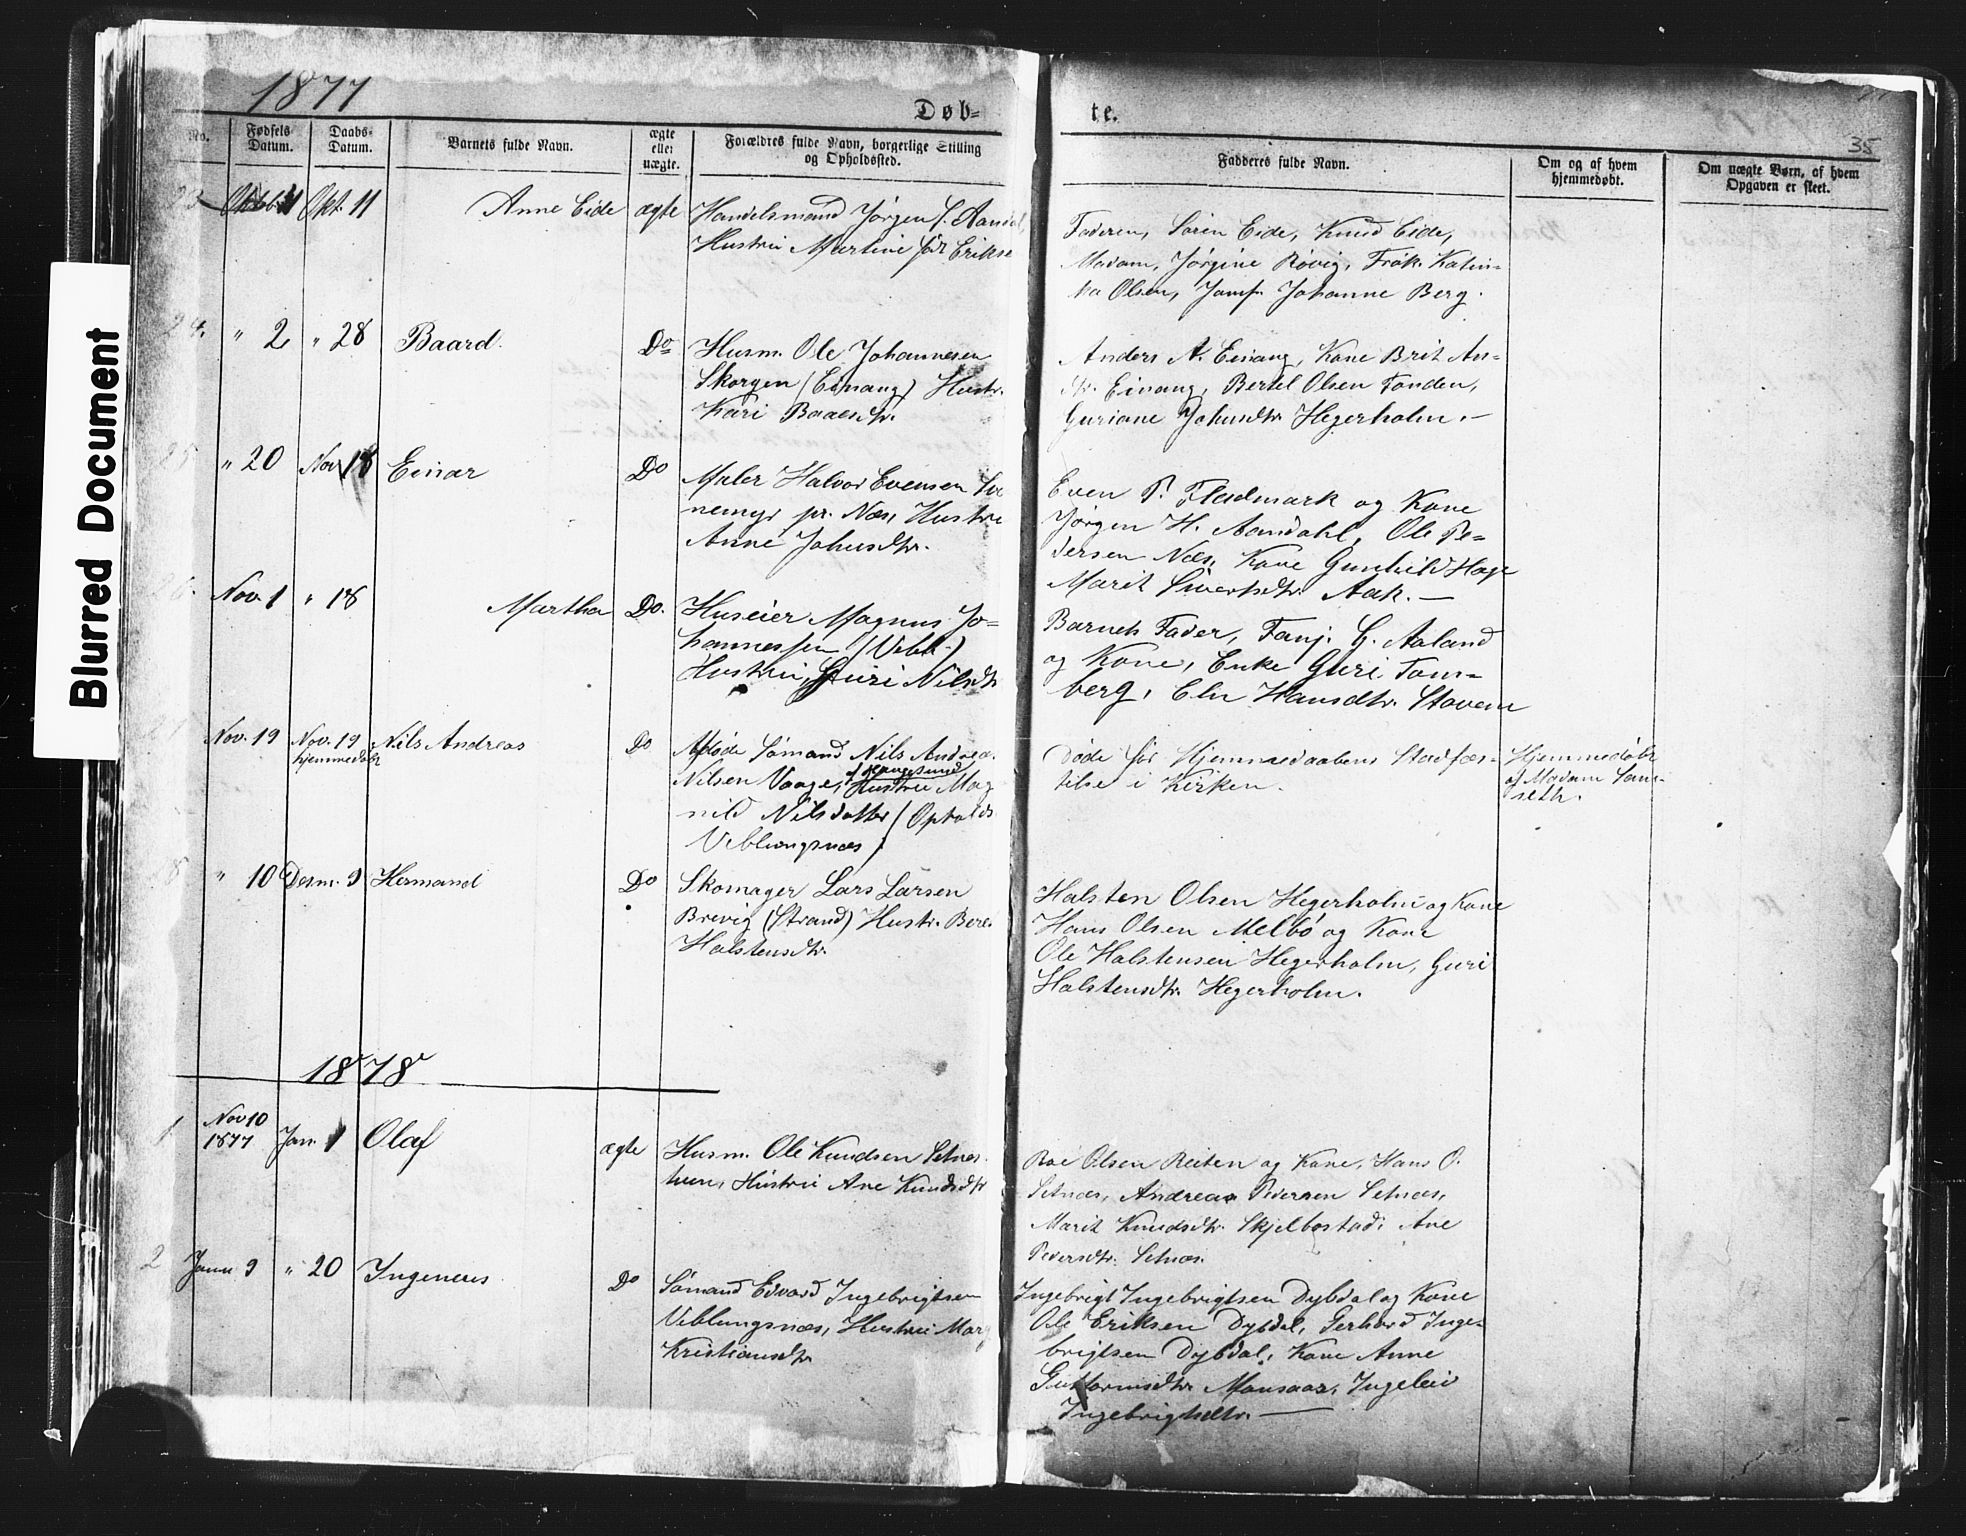 Blurred Document
1877
Døb=
te.
35
No.
Fødsels Datum.
Daabs- Datum.
Barnets fulde Navn.
ægte eller uægte.
Forældres fulde Navn, borgerlige Stilling og Opholdssted.
Fadderes fulde Navn.
Om og af hvem hjemmedøbt.
Om uægte Børn, af hvem Opgaven er skeet.
23 Okt. 11 Anne Eide ægte Handelsmand Jørgen
Hustru Martine
Faderen, Søren Eide, Knud Eide,
Madam, Jørgine Røvig, Frøk. Katin-
ka Olsen, Jomf. Johanne Berg.
24. " 2 " 28 Baard. Do Husm. Ole Johannesen
Skorgen (Einang) Hustr.
Kari Baardsdtr.
Anders A. Einang, Kone Brit An-
Einang, Bertel Olsen Tonden,
Guriane Johnsdtr. Hegerholm. —
25 " 20 Nov 18 Einar Do Maler Halvor Evensen
pr. Næs, Hustru
Anne Johnsdtr.
Even P. Fladmark og Kone
Jørgen H. Aandahl, Ole Pe-
dersen Næs, Kone Gunhild Hage
Marit Sivertsdtr. Aak. —
26. Nov. 1 " 18 Martha Do. Huseier Magnus Jo-
hannessen (Vebl.)
Hustru, Guri Nilsdtr
Barnets Fader, G. Aaland
og Kone, Enke Guri Tom-
berg, Eln Hansdtr. Stavem
Nov. 19 Nov. 19 hjemmedøbt Nils Andreas Do Afdøde Sømand Nils Andreas
Nilsen Vaage, f Haugesund Hustru Mag
nild Nilsdatter (Opholds
Veblungsnæs)
Døde før Hjemmedaabens Stadfæs-
telse i Kirken.
Hjemmedøbt
af Madam Sam-
seth.
8 " 10 Desm. 9 Hermand Do Skomager Lars Larsen
Brevig (Strand) Hustr. Bere
Halstensdtr.
Halsten Olsen Hegerholm og Kone
Hans Olsen Melbø og Kone
Ole Halstensen Hegerholm, Guri
Halstensdtr. Hegerholm.
1878
1 Nov 10 1877 Jan. 1 Olaf ægte Husm. Ole Knudsen Setnes
Hustru Ane Knudsdtr
Roe Olsen Reiten og Kone, Hans O.
Setnæs, Andreas Pedersen Setnæs,
Marit Knudsdtr. Skjelbostad, Ane
Pedersdtr. Setnæs.
2 Janu 9 " 20 Ingeneus Do Sømand Edvard Ingebrigtsen
Veblungsnæs, Hustru Mar
Kristiansdtr
Ingebrigt Ingebrigtsen Dybdal og Kone
Ole Eriksen Dybdal, Gerhard Inge-
brigtsen Dybdal, Kone Anne
Guttormsdtr. Monsaas, Ingeleiv
Ingebrigtsdtr. —